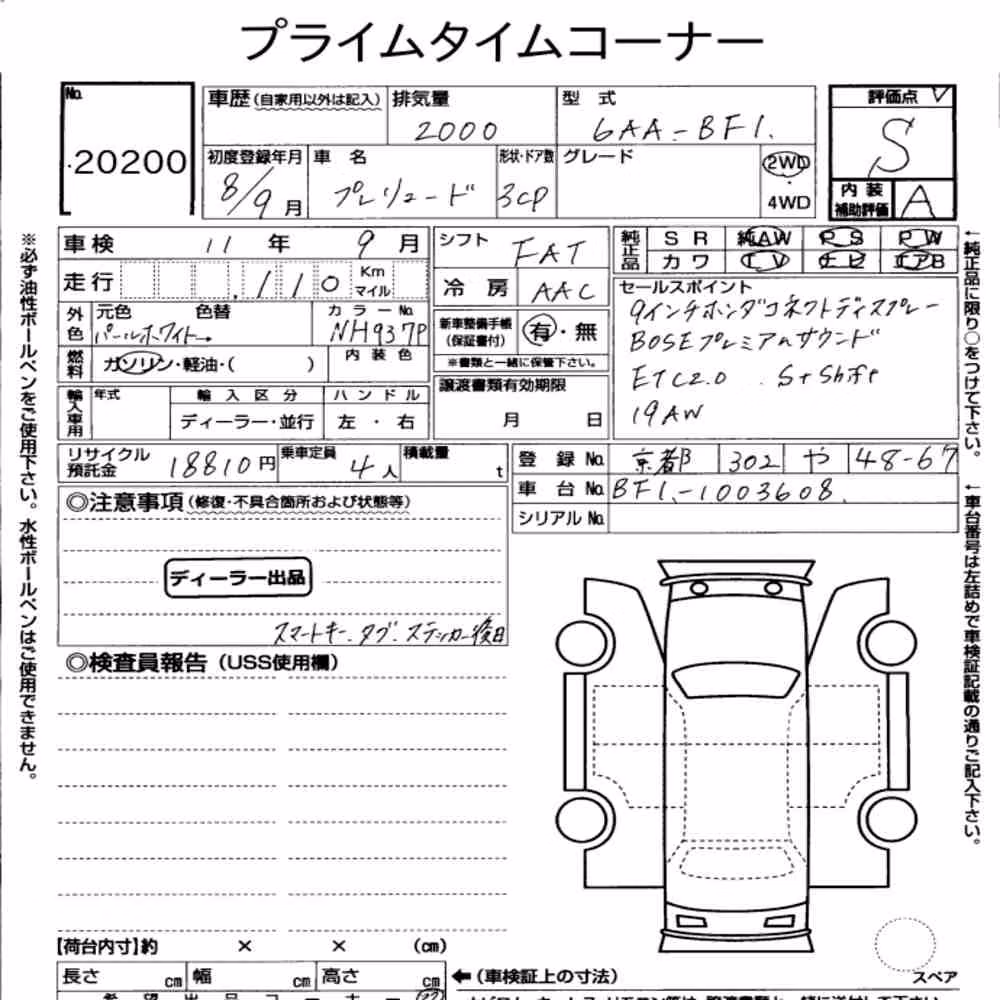 プライムタイムコーナー
No.
20200
車歴(自家用以外は記入) 排気量 型式
2000 6AA-BF1.
初度登録年月 車名 形状・ドア数 グレード
8/9月 プレリュード 3CP
2WD
・
4WD
評価点
S
内装
補助評価 A
車検 11年 9月
走行 110 Km マイル
外色 元色 色替 カラーNo.
パールホワイト NH937P
燃料 ガソリン・軽油・( ) 内装色
輸入車用 年式 輸入区分 ハンドル
ディーラー・並行 左・右
シフト FAT
冷房 AAC
新車整備手帳
(保証書付) 有・無
※書類と一緒に保管下さい。
譲渡書類有効期限
月 日
純正品 SR 純AW PS PW
カワ TV ナビ エアB
セールスポイント
9インチホンダコネクトディスプレー
BOSEプレミアムサウンド
ETC2.0 S+Shift
19AW
リサイクル預託金 18810円 乗車定員 4人 積載量 t
登録No. 京都 302 や 48-67
車台No. BF1-1003608.
シリアルNo.
◎注意事項(修復・不具合箇所および状態等)
ディーラー出品
スマートキー.タグ.ステッカー後日
◎検査員報告(USS使用欄)
【荷台内寸】約 × × (cm)
長さ cm 幅 cm 高さ cm ←(車検証上の寸法)
スペア
※必ず油性ボールペンをご使用下さい。水性ボールペンはご使用できません。
←純正品に限り○をつけて下さい。
←車台番号は左詰めで車検証記載の通りご記入下さい。